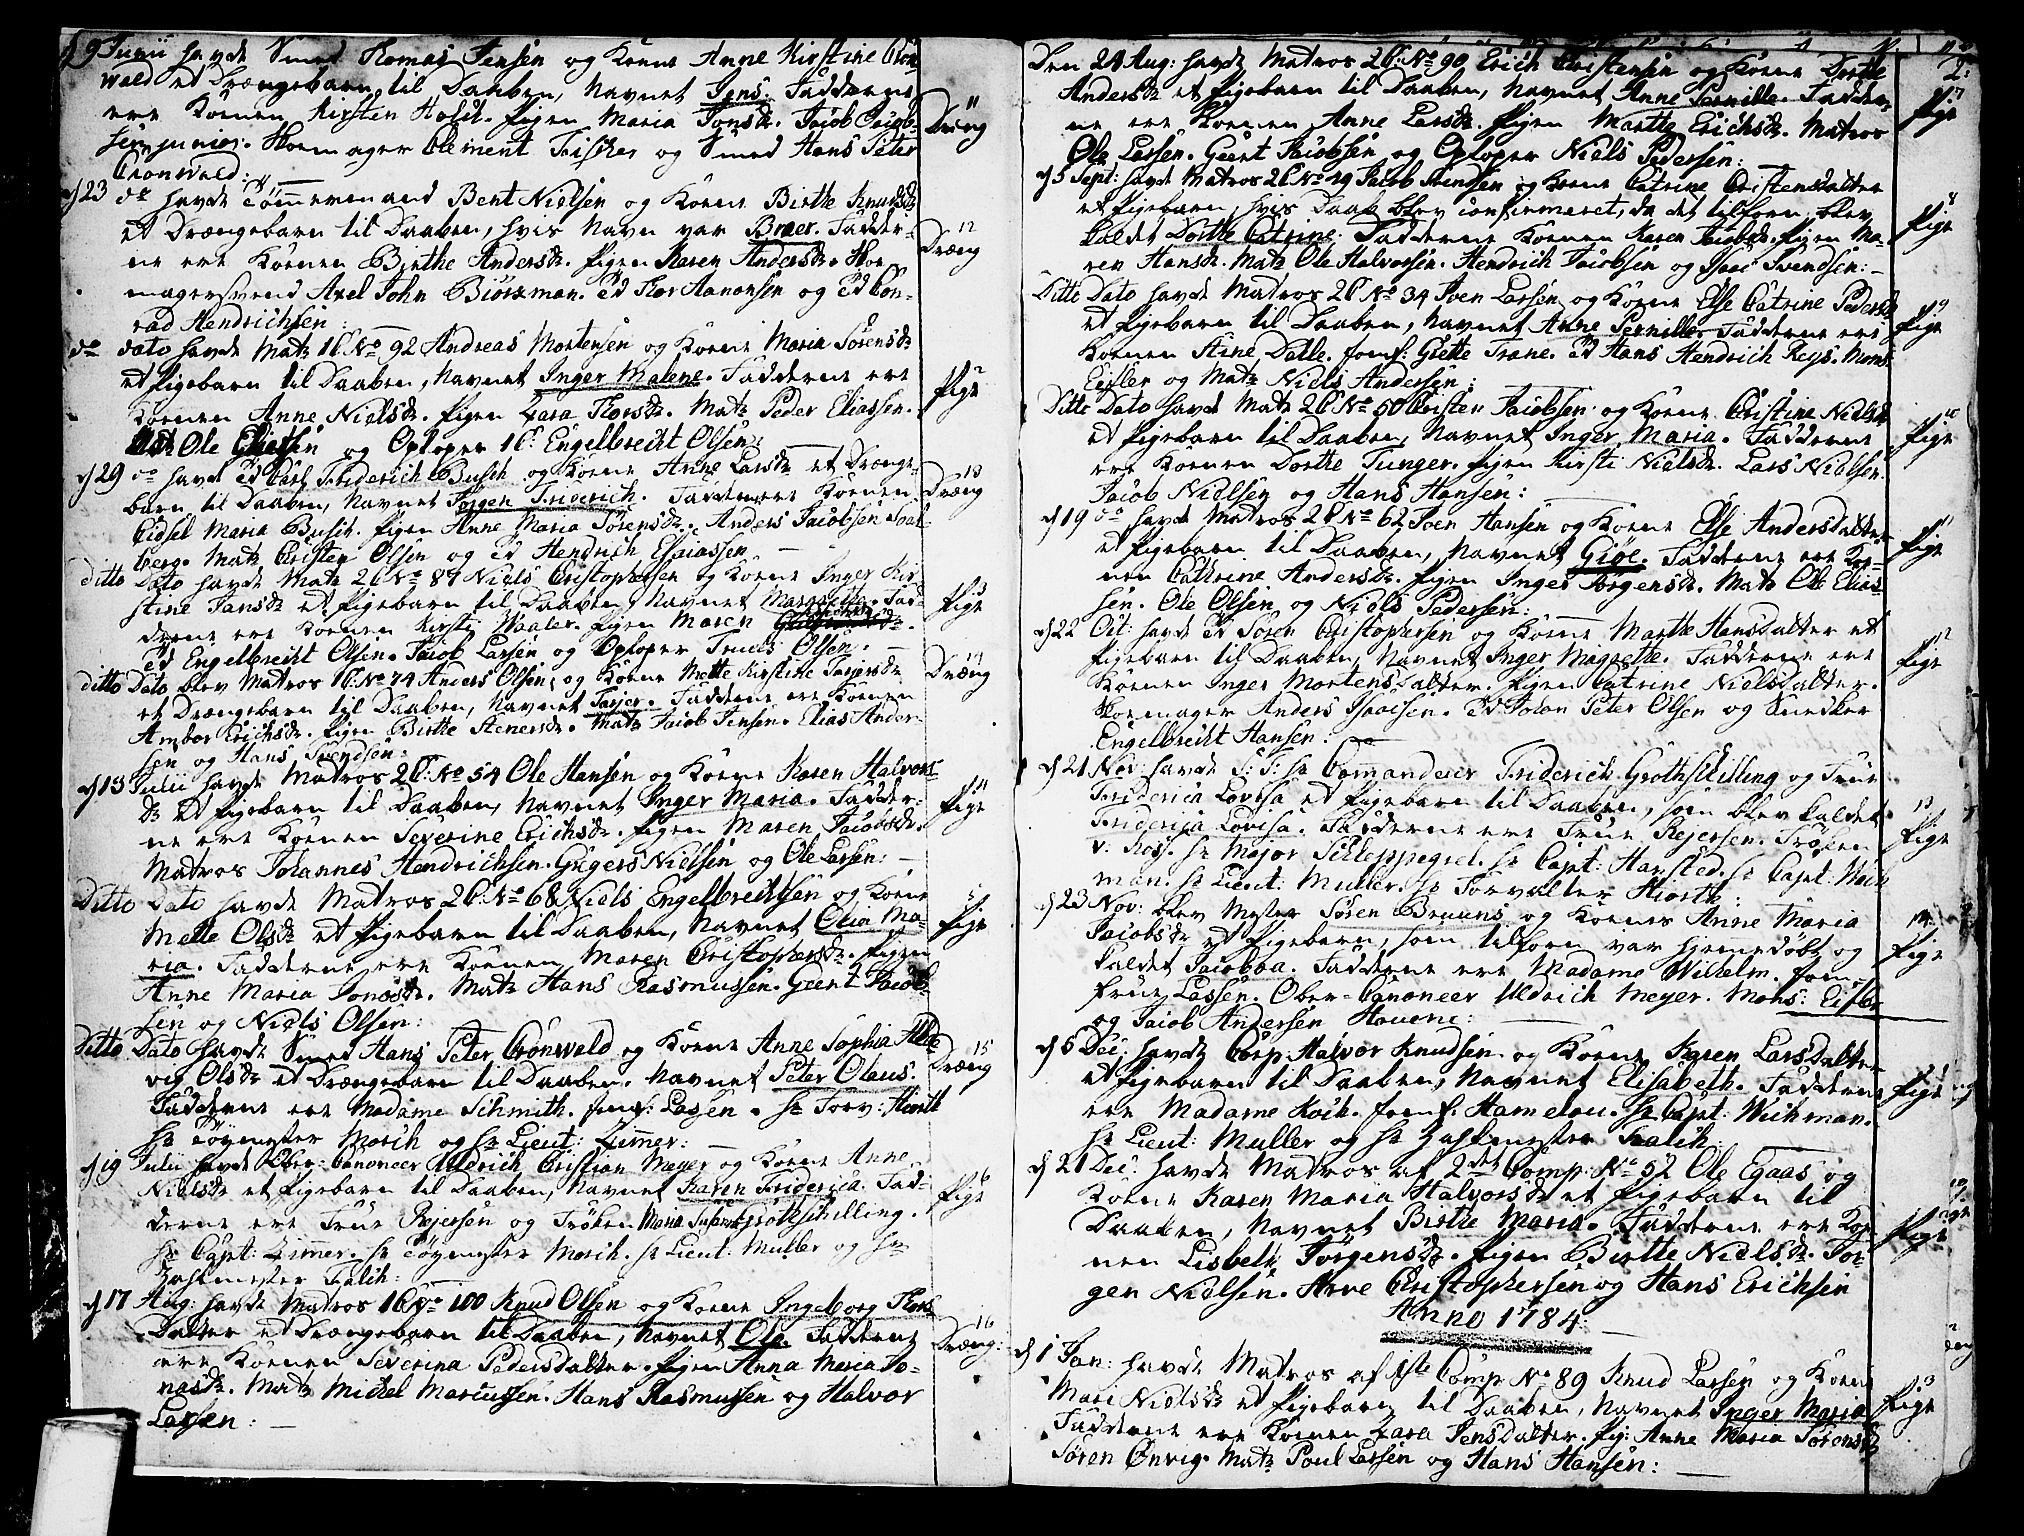 d 9 Junii havde Smed Thomas Jensen og Kone Anne Kirstine Crön-
wald et Drængebarn til Daaben, Navnet Jens. Fadderne
ere Konen Kirsten Holst. Pigen Maria Jonsdr. Jacob Jacob-
sen junior. Skoemager Clement Fischer og Smed Hans Peter
Cronwald:
11 Dræng
d 23 do havde Tömmermand Bent Nielsen og Kone Birthe Knudsdr
et Drængebarn til Daaben, hvis Navn var Braer. Fadder-
ne ere Konen Birthe Andersdr. Pigen Karen Andersdr. Skoe-
magersvend Axel John Biörkman. Ed Thor Aanonsen og Ed Con-
rad Hendrichsen:
12 Dræng
do dato havde Matr 1 C No 92 Andreas Mortensen og Kone Maria Sörensdr
et Pigebarn til Daaben, Navnet Inger Malene. Fadderne ere
Konen Anne Nielsdr. Pigen Zara Thorsdr. Matr Peder Eliassen.
Ole og Oploper 1 C. Engelbrecht Olsen:
2 Pige
d 29 do havde Ed Carl Friderich Busch og Kone Anne Larsdr et Drænge-
barn til Daaben, Navnet Jörgen Friderich. Fadderne ere Konen
Cidsel Maria Busch. Pigen Anne Maria Sörensdr. Anders Jacobsen
berg. Matr Cristen Olsen og Ed Hendrich Esaiassen
13 Dræng
ditto Dato havde Matr 2 C No 87 Niels Cristophersen og Kone Inger Kir-
stine Jansdr et Pigebarn til Daaben, Navnet Margrethe. Fad-
derne ere Konen Kirsti Waaler. Pigen Maren
Ed Engelbrecht Olsen. Jacob Larsen og Oploper Truels Olsen:
3 Pige
ditto Dato blev Matros 1 C: No 74 Anders Olsen, og Kone Mette Kirstine Tarjersdr
et Drængebarn til Daaben, Navnet Tarjer. Fadderne ere Konen
Ambor Erichsdr. Pigen Birthe Aenersdr. Matr Jacob Jensen. Elias Ander-
sen og Hans Svendsen:
14 Dræng
d 13 Julii havde Matros 2 C: No 54 Ole Hansen og Kone Karen Halvors-
dr et Pigebarn til Daaben, Navnet Inger Maria. Fadder-
ne ere Konen Severine Erichsdr. Pigen Maren Jacobsdr.
Matros Johannes Hendrichsen. Gregers Nielsen og Ole Larsen:
4 Pige
Ditto Dato havde Matros 2 C: No 68 Niels Engelbrechtsen og Kone
Mette Olsdr et Pigebarn til Daaben, Navnet Olea Ma-
ria. Fadderne ere Konen Maren Cristophersdr. Pigen
Anne Maria Jonasdr. Matr Hans Rasmussen. Geert Jacob-
sen og Niels Olsen:
5 Pige
Ditto Dato havde Smed Hans Peter Crönwald og Kone Anne Sophia Hed-
vig Olsdr et Drængebarn til Daaben. Navnet Peter Olaus.
Fadderne ere Madame Schmith. Jomf: Lassen. Hr Forv: Hiorth
Hr Töymester Morch og Hr Lieut: Zimmer:
15 Dræng
d 19 Julii havde Ober-Canoneer Uldrich Cristian Meyer og Kone Anne
Nielsdr et Pigebarn til Daaben, Navnet Karen Friderica. Fad-
derne ere Frue Rejersen og Fröken Maria Susanna Grothschilling.
Hr Capt: Zimmer. Hr Töymester Morch. Hr Lieut: Muller og Hr
Haskmester Falch:
6 Pige
d 17 Aug: havde Matros 1 C No 100 Knud Olsen og Kone Ingeborg Thors-
Datter et Drængebarn til Daaben, Navnet Ole. Fadderne
ere Konen Severina Pedersdatter. Pigen Anna Maria Jo-
nasdr. Matr Michel Marcussen. Hans Rasmussen og Halvor
Larsen:
16 Dræng:
Den 24 Aug: havde Matros 2 C: No 90 Erich Cristensen og Kone Dorthe
Andersdr et Pigebarn til Daaben, Navnet Anne Pernille. Fadder-
ne ere Konen Anne Larsdr. Pigen Marthe Erichsdr. Matros
Ole Larsen. Geert Jacobsen og Oploper Niels Pedersen:
7 Pige
d 5 Sept: havde Matros 2 C No 49 Jacob Svendsen og Kone Catrine Cristensdatter
et Pigebarn, hvis Daab blev confirmeret, da det tilforn blev
kaldet Dorthe Catrine. Fadderne Konen Karen Jacobsdr. Pigen Ma-
ren Hansdr. Matr Ole Halvorsen. Hendrich Jacobsen og Isaac Svendsen:
8 Pige
Ditto Dato havde Matros 2 C No 34 Sven Larsen og Kone Else Catrine Pedersdr
et Pigebarn til Daaben, Navnet Anne Pernille. Fadderne ere
Konen Aine Dalle. Jomf: Grette Trane. Ed Hans Hendrich Reys. Mons
Eisler og Matr Niels Andersen:
9 Pige
Ditto Dato havde Matr 2 C No 50 Cristen Jacobsen og Kone Cristine Nielsdr
et Pigebarn til Daaben, Navnet Inger Maria. Fadderne
ere Konen Dorthe Tunger. Pigen Kirsti Nielsdr. Lars Nielsen.
Jacob Nielsen og Hans Hansen:
10 Pige
d 19 do havde Matros 2 C No 62 Sven Hansen og Kone Else Andersdatter
et Pigebarn til Daaben, Navnet Giöe. Fadderne ere Ko-
nen Cathrine Andersdr. Pigen Inger Jörgensdr. Matr Ole Elias-
sen. Ole Olsen og Niels Pedersen:
11 Pige
d 22 Oct: havde Ed Sören Cristophersen og Kone Marthe Hansdatter et
Pigebarn til Daaben, Navnet Inger Magrethe. Fadderne ere
Konen Inger Mortensdatter. Pigen Catrine Nielsdatter.
Skoemager Anders Isacsen. Ed Johan Peter Olsen og Snedker
Engelbrecht Hansen:
12 Pige
d 21 Nov: havde S: T: Hr Commandeur Friderich Grothschilling og Frue
Friderica Lovisa et Pigebarn til Daaben, som blev kaldet
Friderica Lovisa. Fadderne ere Frue Rejersen. Fröken
v. Koss. Hr Major Schleppegrel. Hr Capt: Hansted. Hr Capt: Wich-
man. Hr Lieut: Muller. Hr Forvalter Hiorth:
13 Pige
d 23 Nov: blev Mester Sören Bruuns og Kones Anne Maria
Jacobsdr et Pigebarn, som tilforn var hjemmedöbt og
kaldet Jacobea. Fadderne ere Madame Wilhelm. Jom-
frue Lassen. Ober-Canoneer Uldrich Meyer. Mons: Eisler
og Jacob Andersen Houene:
14 Pige
d 5 Dec: havde Corp Halvor Knudsen og Kone Karen Larsdatter
et Pigebarn til Daaben, Navnet Elisabeth. Fadderne
ere Madame Koch. Jomf: Hamelou. Hr Capt: Wichman.
Hr Lieut: Muller og Hr Haskmester Falch:
Pige
d 21 Dec: havde Matros af 2det Comp: No 52 Ole Egaas og
Kone Karen Maria Halvorsdr et Pigebarn til
Daaben, Navnet Birthe Maria. Fadderne ere Ko-
nen Lisbeth Jörgensdr. Pigen Birthe Nielsdr. Jör-
gen Nielsen. Arve Cristophersen og Hans Erichsen
Pige
Anno 1784:
d 1 Jan: havde Matros af 1ste Comp No 89 Knud Larsen og Kone
Mari Nielsdr et Pigebarn til Daaben, Navnet Inger Maria
Fadderne ere Konen Zara Jensdatter. Pig: Anne Maria Sörensdr
Sören Önvig. Matr Poul Larsen og Hans Hansen:
Pige